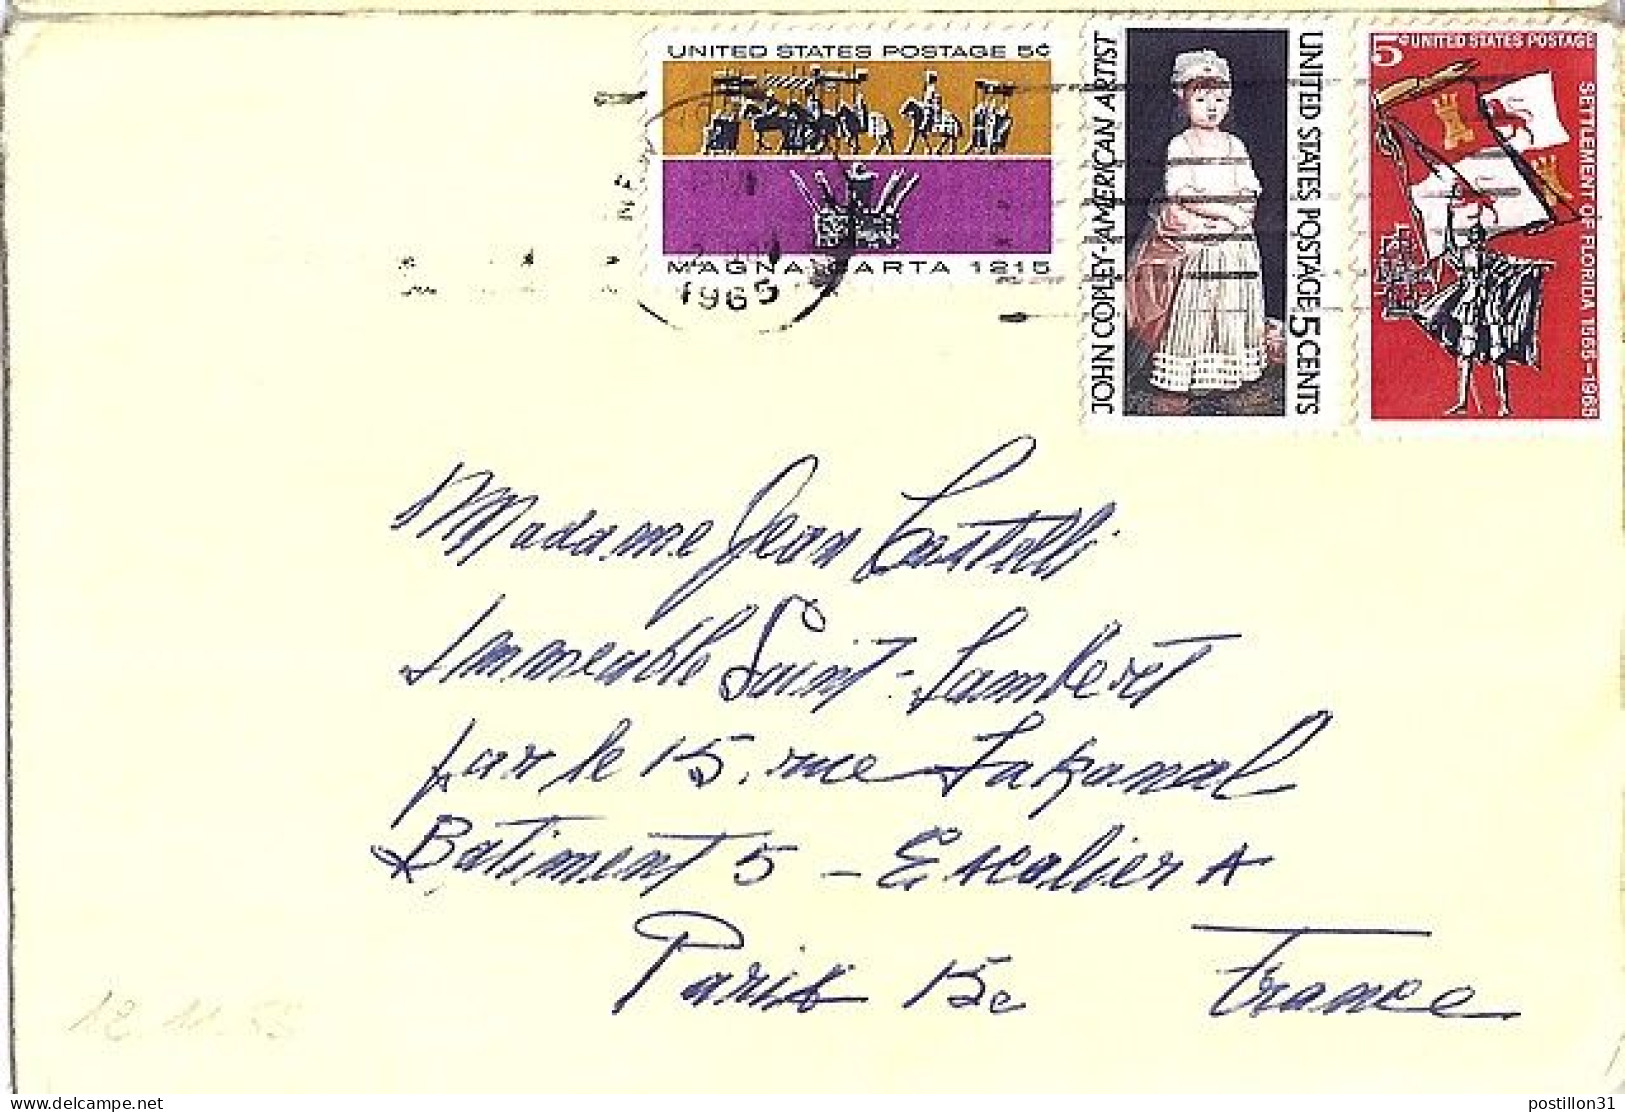 UNITED STATES POSTAGE 5¢
MAGNA CARTA 1215
1965
JOHN COPLEY-AMERICAN ARTIST
UNITED STATES POSTAGE 5 CENTS
5¢ UNITED STATES POSTAGE
SETTLEMENT OF FLORIDA 1565-1965
Madame Jean Castelli
Immeuble Saint-Lambert
par le 15, rue Lakanal
Batiment 5 - Escalier A
Paris 15e France
12.11.65
delcampe.net
postillon31